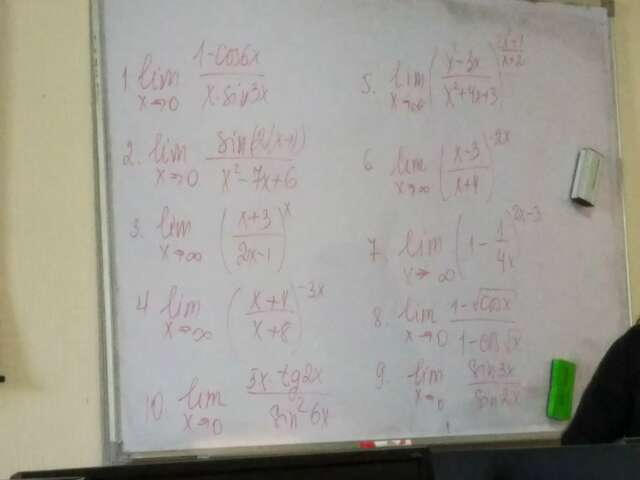 1. lim x→0 (1-cos6x)/(x·sin3x)
2. lim x→0 sin(2(x-1))/(x²-7x+6)
3. lim x→∞ ((x+3)/(2x-1))^x
4. lim x→∞ ((x+4)/(x+8))^(-3x)
10. lim x→0 (3x·tg2x)/(sin²6x)
5. lim x→∞ ((x²-3x)/(x²+4x+3))
6. lim x→∞ ((x-3)/(x+4))^(-2x)
7. lim x→∞ (1-1/(4x))^(2x-3)
8. lim x→0 (1-√cosx)/(1-cos√x)
9. lim x→0 sin3x/sin2x